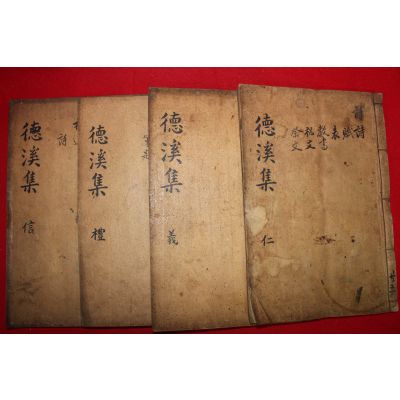 詩
賦
表
教書
祭文
德溪集
仁
德溪集
義
德溪集
禮
詩
德溪集
信